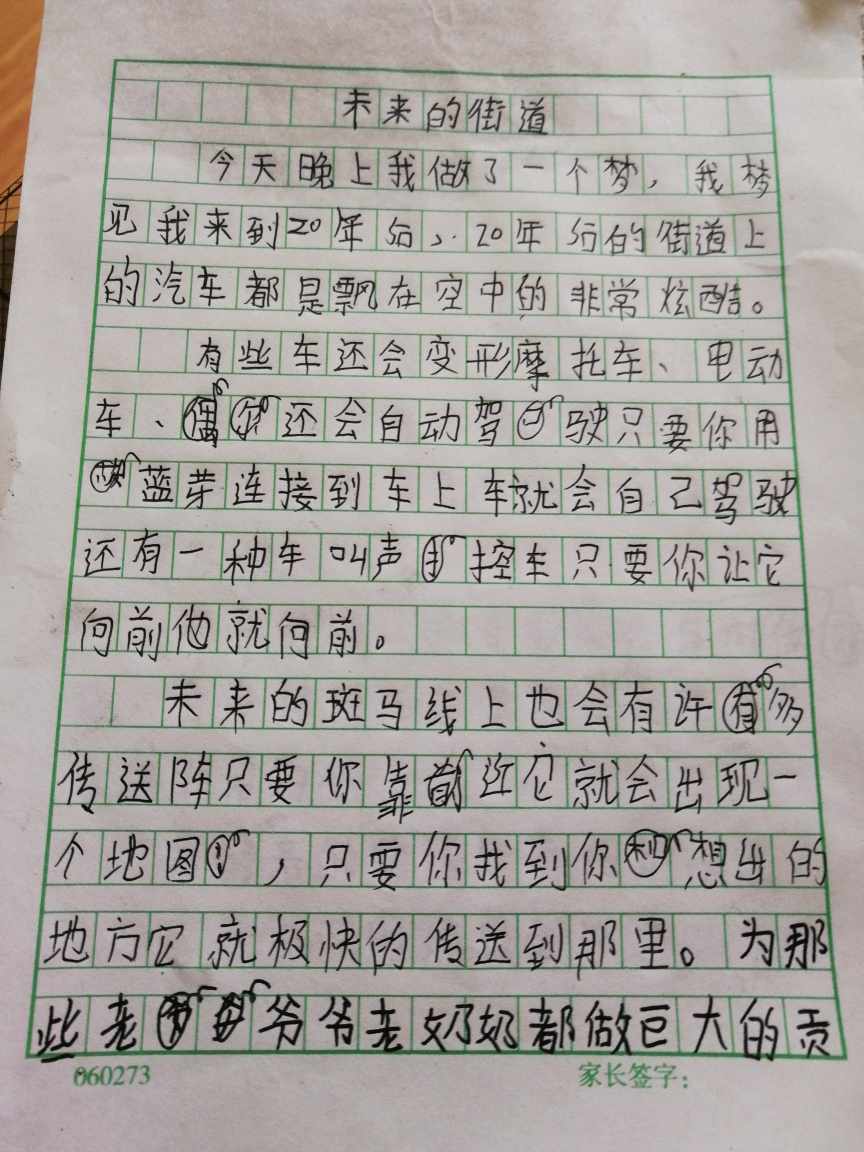 未来的街道
今天晚上我做了一个梦，我梦
见我来到20年后，20年后的街道上
的汽车都是飘在空中的非常炫酷。
有些车还会变形摩托车、电动
车、还会自动驾驶只要你用
蓝芽连接到车上车就会自己驾驶
还有一种车叫声控车只要你让它
向前他就向前。
未来的斑马线上也会有许多
传送阵只要你靠近它就会出现一
个地图，只要你找到你想出的
地方它就极快的传送到那里。为那
些老爷爷老奶奶都做巨大的贡
060273
家长签字：